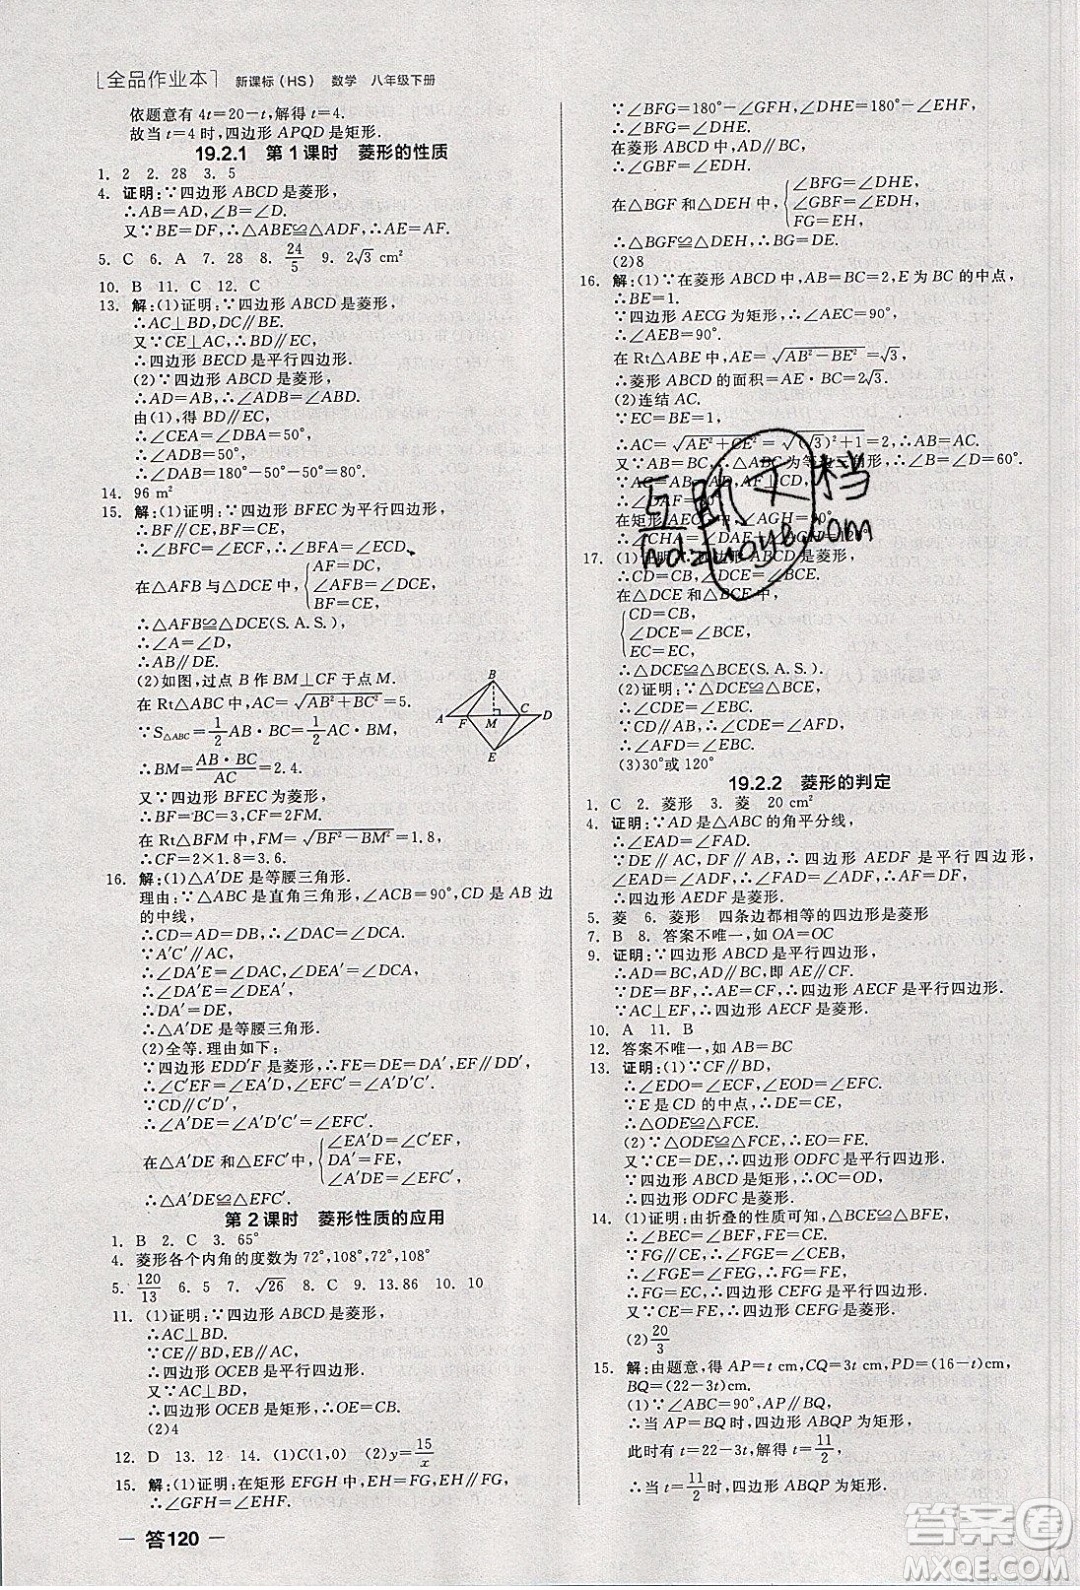 全品作业本 新课标(HS) 数学 八年级下册
依题意有4t=20-t,解得t=4.
故当t=4时,四边形APQD是矩形.
19.2.1 第1课时 菱形的性质
1. 2 2. 28 3. 5
4. 证明:∵四边形ABCD是菱形,
∴AB=AD,∠B=∠D.
又∵BE=DF,∴△ABE≌△ADF,∴AE=AF.
5. C 6. A 7. 28 8. 24/5 9. 2√3 cm²
10. B 11. C 12. C
13. 解:(1)证明:∵四边形ABCD是菱形,
∴AC⊥BD,DC∥BE.
又∵CE⊥AC,∴BD∥EC,
∴四边形BECD是平行四边形.
(2)∵四边形ABCD是菱形,
∴AD=AB,∴∠ADB=∠ABD.
由(1),得BD∥EC,
∴∠CEA=∠DBA=50°,
∴∠ADB=50°,
∴∠DAB=180°-50°-50°=80°.
14. 96 m²
15. 解:(1)证明:∵四边形BFEC为菱形,
∴BF∥CE,BF=CE,
∴∠BFC=∠ECF,∴∠AFB=∠DCE.
在△AFB与△DCE中,{AF=DC,
∠AFB=∠DCE,
BF=CE,
∴△AFB≌△DCE(S.A.S.),
∴∠A=∠D,
∴AB∥DE.
(2)如图,过点B作BM⊥CF于点M.
在Rt△ABC中,AC=√(AB²+BC²)=5.
∵S△ABC=1/2AB·BC=1/2AC·BM,
∴BM=AB·BC/AC=2.4.
又∵四边形BFEC为菱形,
∴BF=BC=3,CF=2FM.
在Rt△BFM中,FM=√(BF²-BM²)=1.8,
∴CF=2×1.8=3.6.
B
A F M C D
E
16. 解:(1)△A′DE是等腰三角形.
理由:∵△ABC是直角三角形,∠ACB=90°,CD是AB边
的中线,
∴CD=AD=DB,∴∠DAC=∠DCA.
∵A′C′∥AC,
∴∠DA′E=∠DAC,∠DEA′=∠DCA,
∴∠DA′E=∠DEA′,
∴DA′=DE,
∴△A′DE是等腰三角形.
(2)全等.理由如下:
∵四边形EDD′F是菱形,∴DE=FE=DA′,EF∥DD′,
∴∠C′EF=∠EA′D,∠EFC′=∠A′D′C′.
∵CD∥C′D′,
∴∠A′DE=∠A′D′C′=∠EFC′.
在△A′DE和△EFC′中,{∠EA′D=∠C′EF,
DA′=FE,
∠A′DE=∠EFC′,
∴△A′DE≌△EFC′.
第2课时 菱形性质的应用
1. B 2. C 3. 65°
4. 菱形各个内角的度数为72°,108°,72°,108°.
5. 120/13 6. 5 7. √26 8. C 9. 13.86 10. 10
11. (1)证明:∵四边形ABCD是菱形,
∴AC⊥BD.
∵CE∥BD,EB∥AC,
∴四边形OCEB是平行四边形.
又∵AC⊥BD,
∴四边形OCEB是矩形,∴OE=CB.
(2)4
12. D 13. 12 14. (1)C(1,0) (2)y=15/x
15. 解:(1)证明:在矩形EFGH中,EH=FG,EH∥FG,
∴∠GFH=∠EHF.
答120
∵∠BFG=180°-∠GFH,∠DHE=180°-∠EHF,
∴∠BFG=∠DHE.
在菱形ABCD中,AD∥BC,
∴∠GBF=∠EDH.
在△BGF和△DEH中,{∠BFG=∠DHE,
∠GBF=∠EDH,
FG=EH,
∴△BGF≌△DEH,∴BG=DE.
(2)8
16. 解:(1)∵在菱形ABCD中,AB=BC=2,E为BC的中点,
∴BE=1.
∵四边形AECG为矩形,∴∠AEC=90°,
∴∠AEB=90°.
在Rt△ABE中,AE=√(AB²-BE²)=√3,
∴菱形ABCD的面积=AE·BC=2√3.
(2)连结AC.
∵EC=BE=1,
∴AC=√(AE²+CE²)=√((√3)²+1)=2,∴AB=AC.
又∵AB=BC,∴△ABC为等边三角形,∴∠D=60°.
互助文档
hdzuoye.com
17. (1)证明:∵四边形ABCD是菱形,
∴CD=CB,∠DCE=∠BCE.
在△DCE和△BCE中,
{CD=CB,
∠DCE=∠BCE,
EC=EC,
∴△DCE≌△BCE(S.A.S.).
(2)证明:∵△DCE≌△BCE,
∴∠CDE=∠EBC.
∵CD∥AB,∴∠CDE=∠AFD,
∴∠AFD=∠EBC.
(3)30°或120°
19.2.2 菱形的判定
1. C 2. 菱形 3. 菱 20 cm²
4. 证明:∵AD是△ABC的角平分线,
∴∠EAD=∠FAD.
∵DE∥AC,DF∥AB,∴四边形AEDF是平行四边形,
∠EAD=∠ADF,∴∠FAD=∠ADF,∴AF=DF,
∴四边形AEDF是菱形.
5. 菱 6. 菱形 四条边都相等的四边形是菱形
7. B 8. 答案不唯一,如OA=OC
9. 证明:∵四边形ABCD是平行四边形,
∴AD=BC,AD∥BC,即AE∥CF.
∵DE=BF,∴AE=CF,∴四边形AECF是平行四边形.
∵AC⊥EF,∴四边形AECF是菱形.
10. A 11. B
12. 答案不唯一,如AB=BC
13. 证明:(1)∵CF∥BD,
∴∠EDO=∠ECF,∠EOD=∠EFC.
∵E是CD的中点,∴DE=CE,
∴△ODE≌△FCE.
(2)∵△ODE≌△FCE,∴OE=FE.
又∵CE=DE,∴四边形ODFC是平行四边形.
∵四边形ABCD是矩形,∴OC=OD,
∴四边形ODFC是菱形.
14. (1)证明:由折叠的性质可知,△BCE≌△BFE,
∴∠BEC=∠BEF,FE=CE.
∵FG∥CE,∴∠FGE=∠CEB,
∴∠FGE=∠FEG,
∴FG=EC,∴四边形CEFG是平行四边形.
又∵CE=FE,∴四边形CEFG是菱形.
(2)20/3
15. 解:由题意,得AP=t cm,CQ=3t cm,PD=(16-t)cm,
BQ=(22-3t)cm.
(1)∵∠ABC=90°,AP∥BQ,
∴当AP=BQ时,四边形ABQP为矩形,
此时有t=22-3t,解得t=11/2,
∴当t=11/2时,四边形ABQP为矩形.
答案圈
MXQE.COM